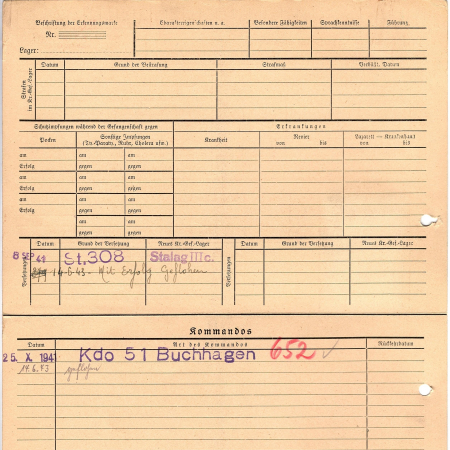 Beschriftung der Erkennungsmarke
Nr.
Lager:
Charaktereigenschaften u. a.
Besondere Fähigkeiten
Sprachkenntnisse
Führung
Strafen im Kr.-Gef.-Lager
Datum
Grund der Bestrafung
Strafmaß
Verbüßt, Datum
Schutzimpfungen während der Gefangenschaft gegen
Erkrankungen
Pocken
Sonstige Impfungen
(Ty.-Paraty., Ruhr, Cholera usw.)
Krankheit
Revier
von bis
Lazarett — Krankenhaus
von bis
am am am
Erfolg gegen gegen
am am am
Erfolg gegen gegen
am am am
Erfolg gegen gegen
am am
gegen gegen
Versetzungen
Datum
Grund der Versetzung
Neues Kr.-Gef.-Lager
Versetzungen
Datum
Grund der Versetzung
Neues Kr.-Gef.-Lager
8 SEP 41 St. 308 Stalag III c.
14.6.43 - Mit Erfolg Geflohen
Kommandos
Datum
Art des Kommandos
Rückkehrdatum
25. X. 194 Kdo 51 Buchhagen 652
14.6.43 geflohen